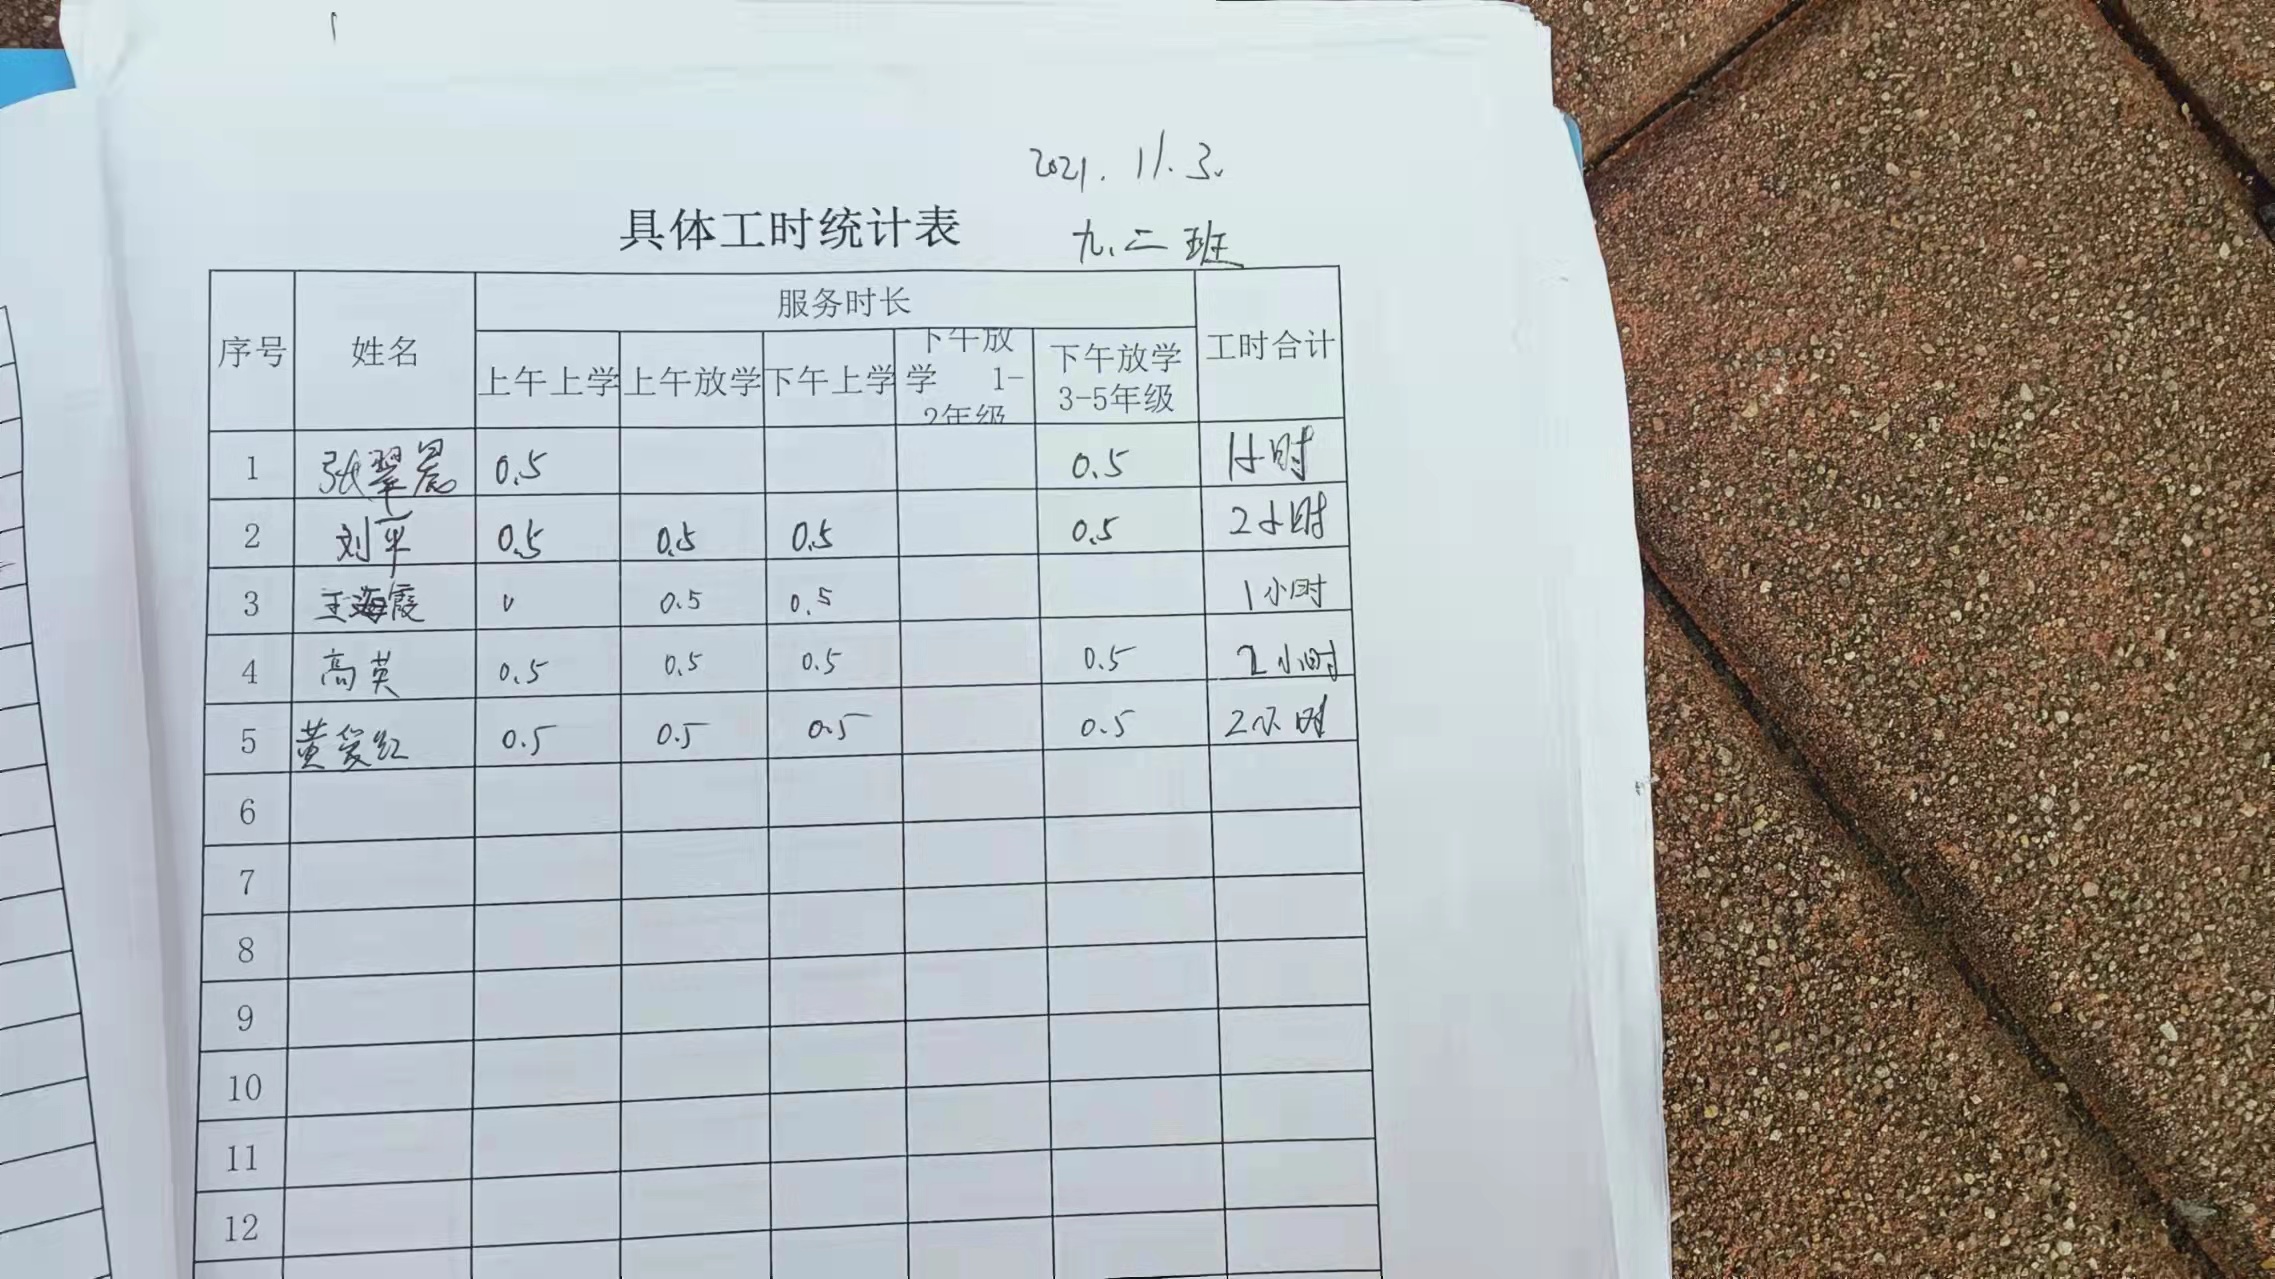 2021. 11. 3.
具体工时统计表 九.二班
序号 姓名 服务时长 工时合计
上午上学 上午放学 下午上学 下午放学 1-2年级 下午放学 3-5年级
1 张翠晨 0.5 0.5 1小时
2 刘平 0.5 0.5 0.5 0.5 2小时
3 王海霞 0.5 0.5 1小时
4 高英 0.5 0.5 0.5 0.5 2小时
5 黄爱红 0.5 0.5 0.5 0.5 2小时
6
7
8
9
10
11
12